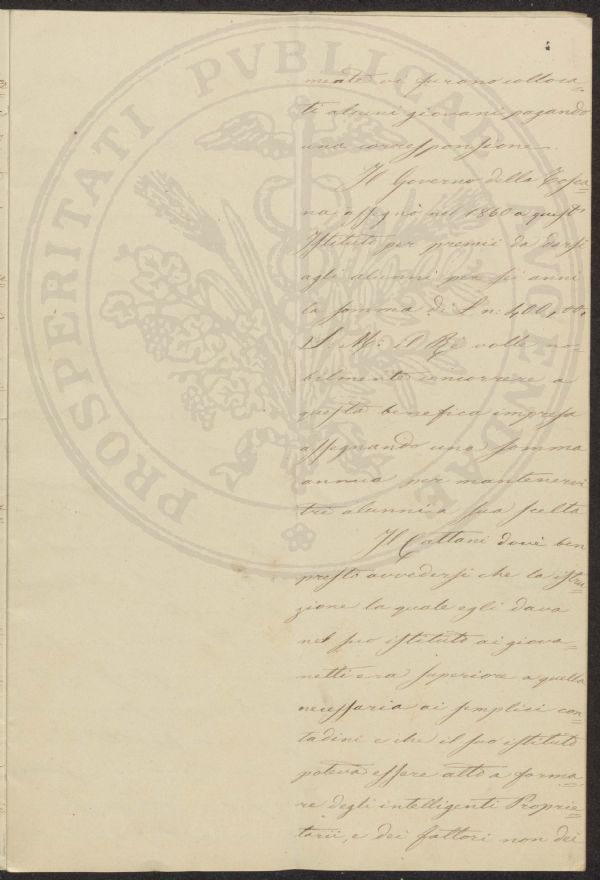 PROSPERITATI PVBLICAE AVGENDAE
mente vi furono colloca=
ti alcuni giovani pagando
una corresponsione.
Il Governo della Tosca=
na assegnò nel 1860 a questo
Istituto per premii da darsi
agli alunni per sei anni
la somma di L. n: 400,00.
S. M: il Re volle no=
bilmente concorrere a
questa benefica impresa
assegnando una somma
annua per mantenervi
tre alunni a sua scelta
Il Cattani dovè ben
presto avvedersi che la istru=
zione la quale egli dava
nel suo istituto ai giova=
netti era superiore a quella
necessaria ai semplici con=
tadini e che il suo istituto
poteva essere atto a forma=
re degli intelligenti Proprie=
tarii, e dei fattori non dei